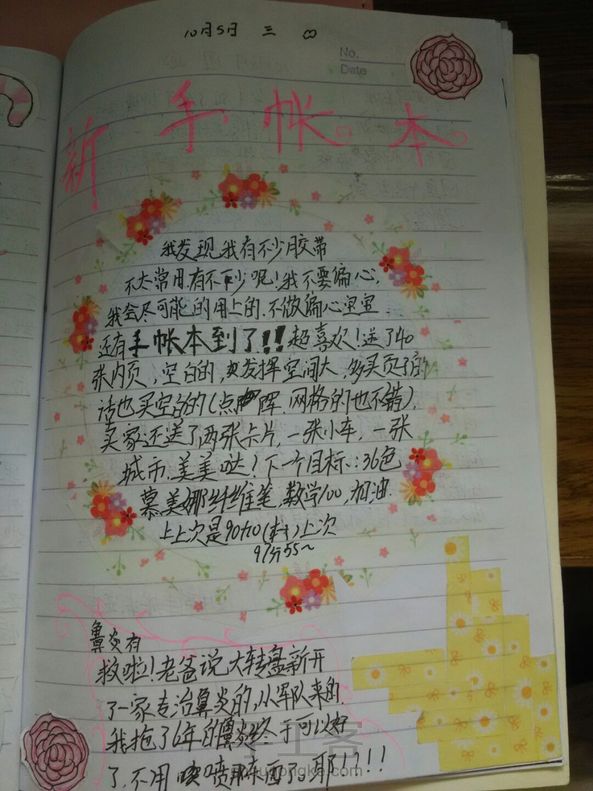 10月5日 三 ∞
No.
Date
新手帐本
我发现我有不少胶带
不太常用,有不少呢!我不要偏心,
我会尽可能的用上的,不做偏心宝宝.
还有手帐本到了!!!超喜欢!送了40
张内页,空白的,发挥空间大,多买页子的
话也买空白的(点阵,网格的也不错),
卖家还送了两张卡片,一张小车,一张
城市,美美哒!下一个目标:36色
慕美娜纤维笔,数学100,加油.
上上次是90 上次
97分55~
鼻炎有
救啦!老爸说,大转盘新开
了一家专治鼻炎的,从军队来的.
我拖了6年的鼻炎终于可以好
了,不用喷那东西了。耶!?!!